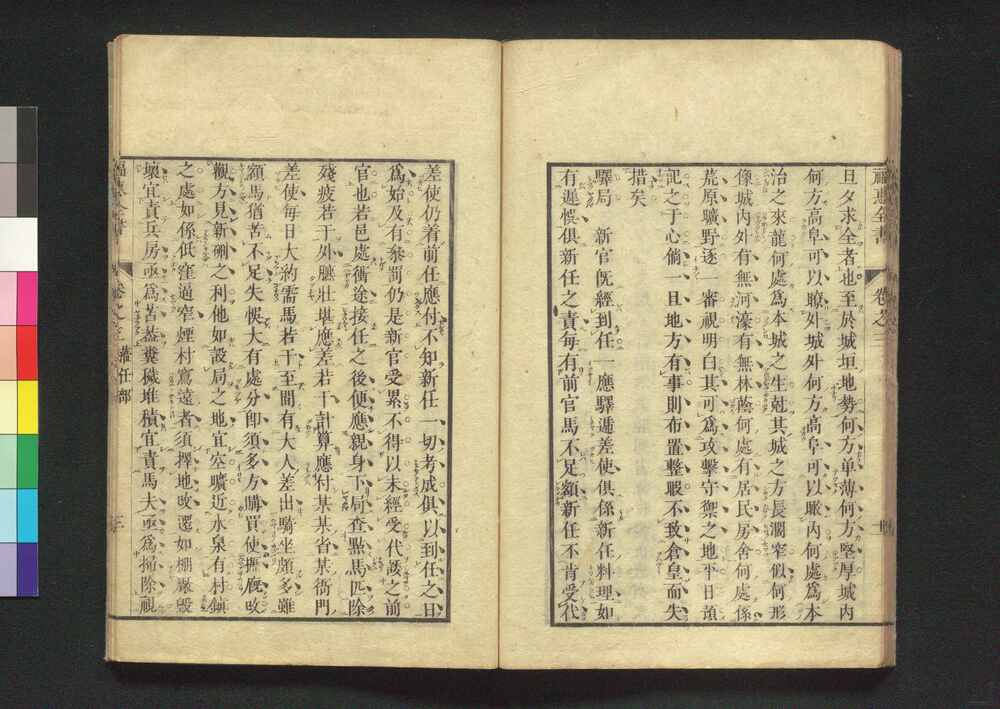 旦夕求全者也至於城垣地勢何方单薄何方堅厚城内
何方高阜可以瞭外城外何方高阜可以瞰内何處爲本
治之來龍何處爲本城之生尅其城之方長濶窄似何形
像城内外有無河濠有無林蔭何處有居民房舍何處係
荒原曠野逐一審視明白其可爲攻擊守禦之地平日須
記之于心倘一旦地方有事則布置整暇不致倉皇而失
措矣
驛局 新官旣經到任一應驛遞差使俱係新任料理如
有遲悞俱新任之責每有前官馬不足額新任不肯受代
福惠全書 卷之三
差使仍着前任應付不知新任一切考成俱以到任之日
爲始及有參罰仍是新官受累不得以未經受代諉之前
官也若邑處衝途接任之後便應親身下局查點馬匹除
殘疲若干外臕壯堪應差若干計算應付某某省某衙門
差使每日大約需馬若干至間有大人差出騎坐頗多雖
額馬猶苦不足失悞大有處分卽須多方購買使撫廐改
觀方見新硎之利他如設局之地宜空曠近水泉有村鎮
之處如係低窪逼窄煙村寫遠者須擇地改遷如棚廠毀
壞宜責兵房亟爲苫葢糞穢堆積宜責馬夫亟爲掃除視
福惠全書 卷之三 蒞任部 三